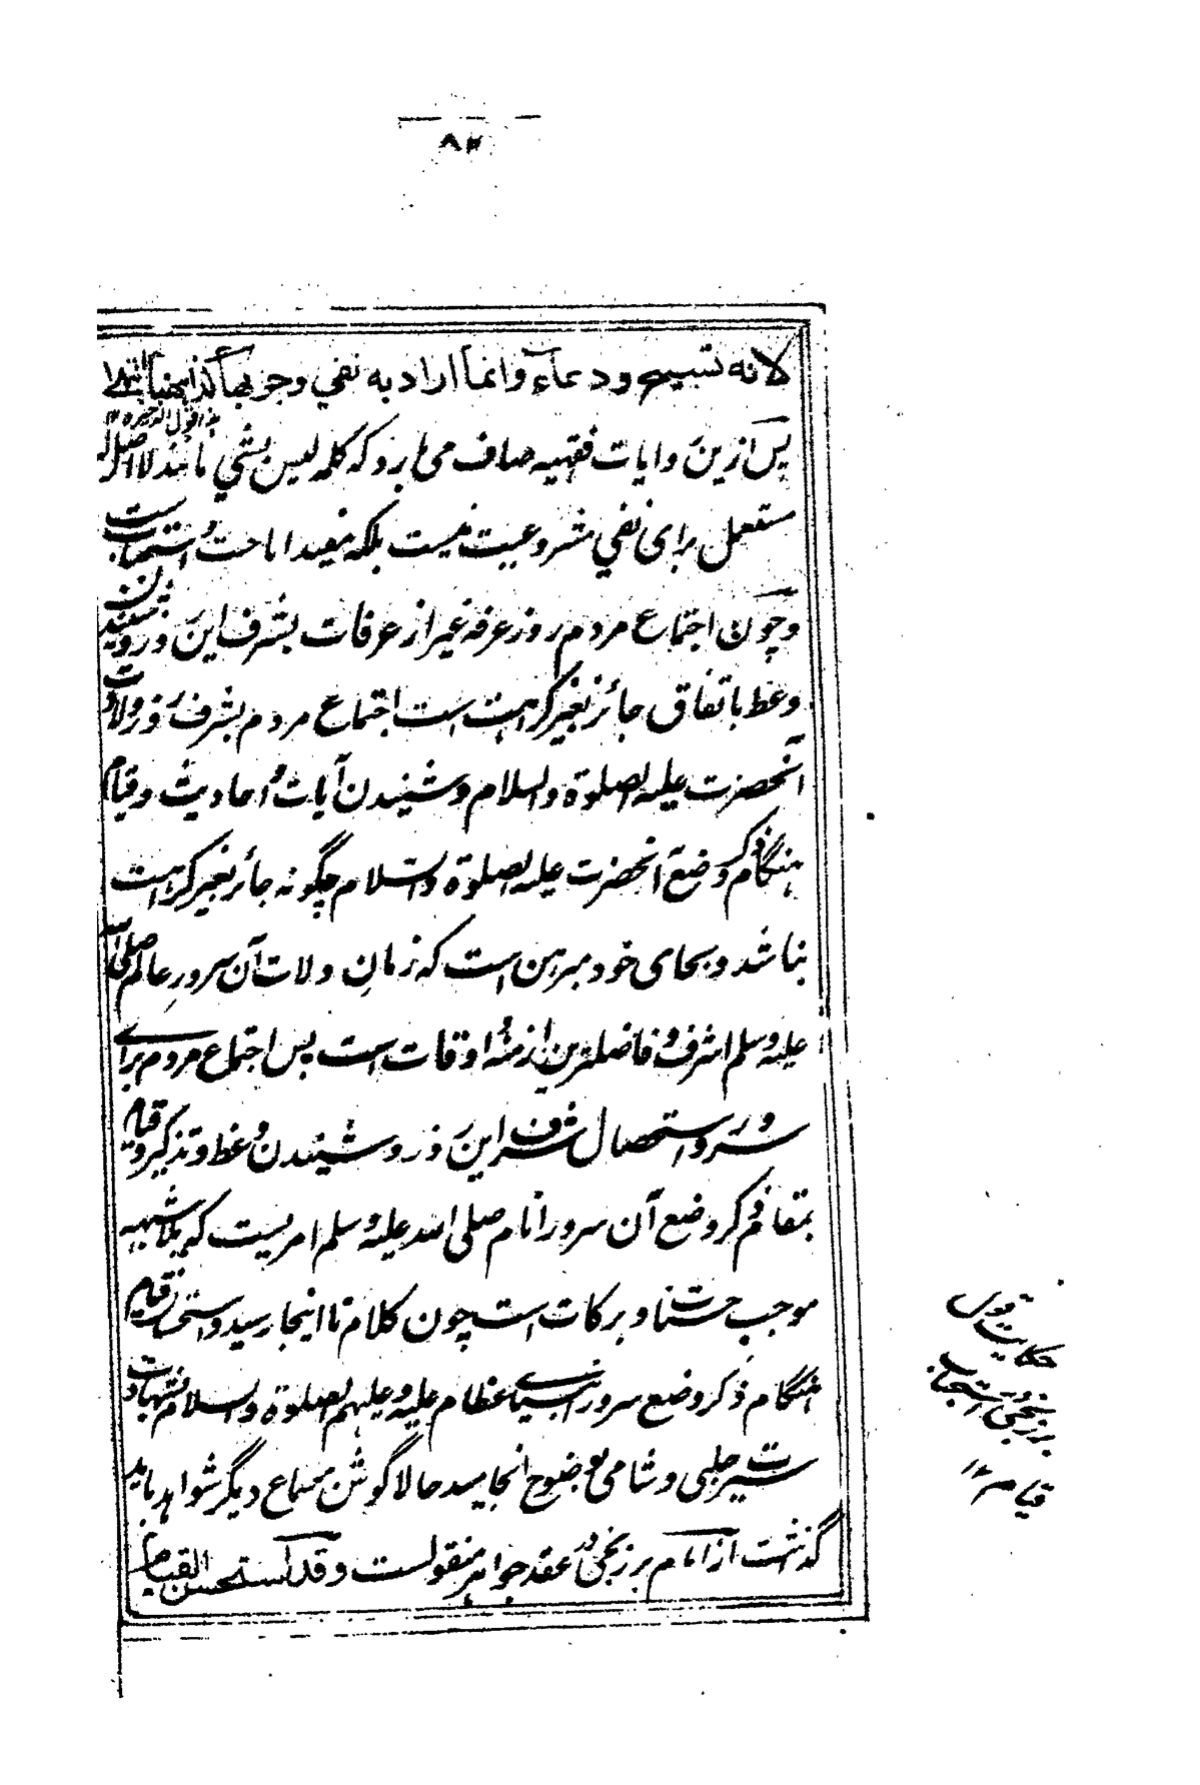 ۸۲
لانه تسبیح ودعاء وانما اراد به نفي وجوبها کذا ههنا انتهى
پس ازین روایات فقهیه صاف می بارد که کلمه لیس بشي مانند لا اصل له
مستعمل برای نفي مشروعیت نیست بلکه مفید اباحت و استحباب است
وچون اجتماع مردم روز عرفه غیر از عرفات بشرف این روز و شنیدن
وعظ باتفاق جائز بغیر کراهت است اجتماع مردم بشرف روز ولادت
آنحضرت علیه الصلوة والسلام وشنیدن آیات و احادیث وقیام
هنگام ذکر وضع آنحضرت علیه الصلوة والسلام چگونه جائز بغیر کراهت
نباشد وبجای خود مبرهن است که زمان ولادت آن سرور عالم صلی الله
علیه وسلم اشرف و فاضلترین ازمنه و اوقات است پس اجتماع مردم برای
سرور و استحصال شرف این روز و شنیدن وعظ و تذکیر و قیام
بمقام ذکر وضع آن سرور انام صلی الله علیه وسلم امریست که بلا شبهه
موجب حسنات و برکات است چون کلام تا اینجا رسید و استحسان قیام
هنگام ذکر وضع سرور انبیای عظام علیه وعلیهم الصلوة والسلام بشهادت
سیرت حلبی و شامی بوضوح انجامید حالا گوش بسماع دیگر شواهد باید
گذاشت از امام برزنجی در عقد جواهر منقولست وقد استحسن القیام
حکایت قول
برزنجی در استحباب
قیام ۱۲